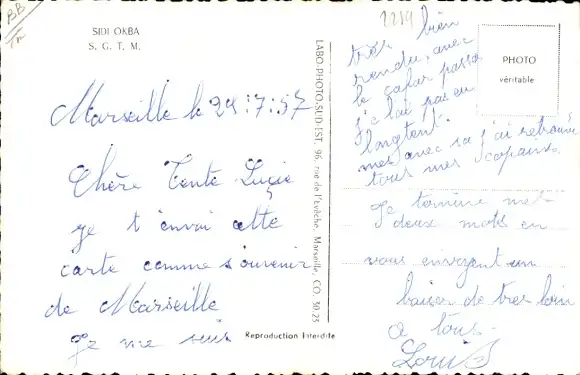 BB
SIDI OKBA
S. G. T. M.
Marseille le 24:7:57
Chère Tente Lucie
je t'envoi cette
carte comme souvenir
de Marseille
Je me suis
Reproduction Interdite
LABO-PHOTO-SUD-EST, 96, rue de l'Evêché, Marseille, CO. 30-23
2219
PHOTO
véritable
très bien
rendu, avec
le cafar passa
j'e lai pas eu
longtent.
mes avec sa j'ai retrouvé
tous mes copains.
Je termine mes
deux mots en
vous envoyent un
baiser de tres loin
a tous.
Louis